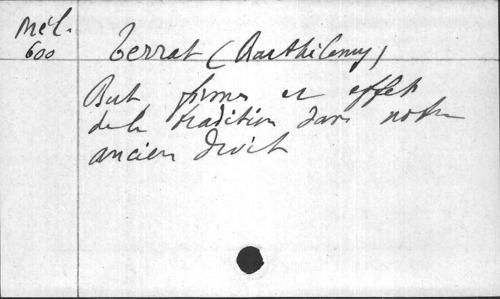 Mél. 600
Terrat (Barthélemy)
But formes et effets
de la tradition dans notre
ancien droit